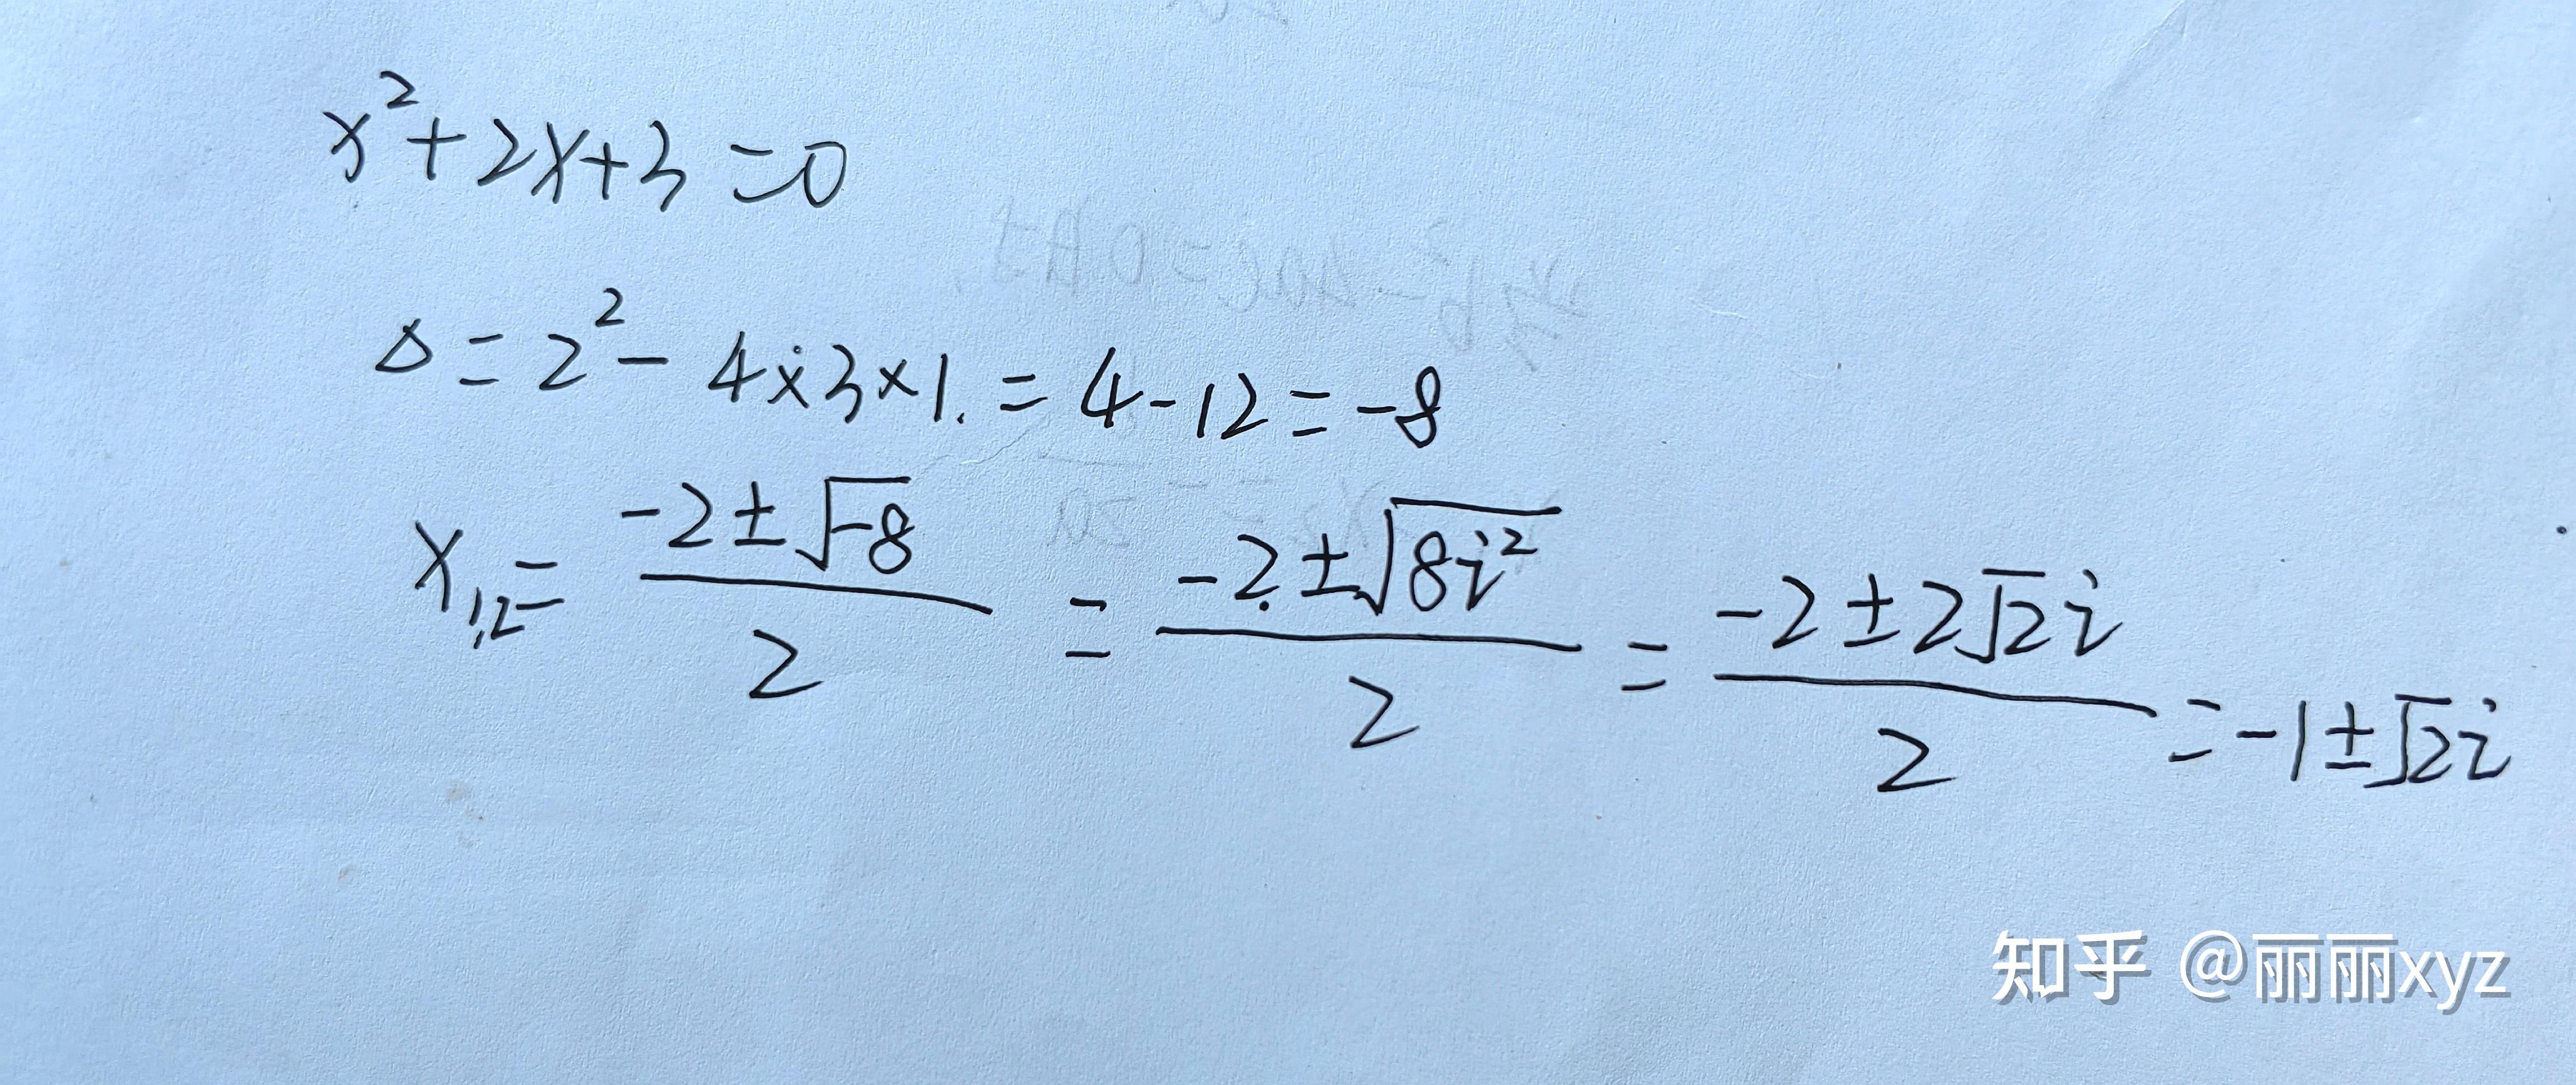 x²+2x+3=0
Δ=2²-4×3×1.=4-12=-8
x₁,₂=(-2±√-8)/2=(-2±√8i²)/2=(-2±2√2i)/2=-1±√2i
知乎 @丽丽xyz